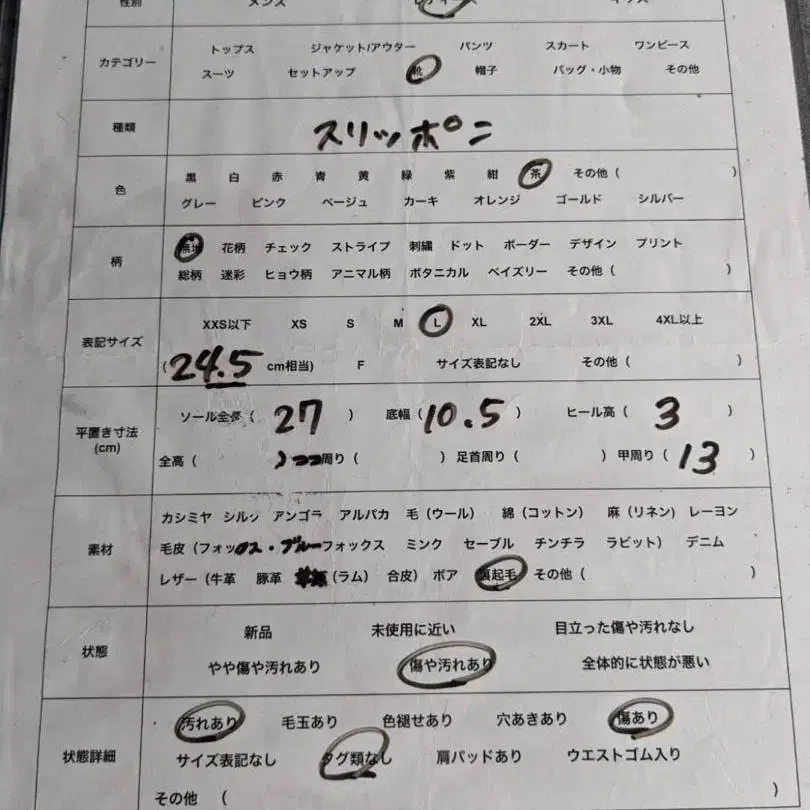 性別 メンズ レディース キッズ
カテゴリー
トップス ジャケット/アウター パンツ スカート ワンピース
スーツ セットアップ 靴 帽子 バッグ・小物 その他
種類 スリッポニ
色
黒 白 赤 青 黄 緑 紫 紺 茶 その他 ( )
グレー ピンク ベージュ カーキ オレンジ ゴールド シルバー
柄
無地 花柄 チェック ストライプ 刺繍 ドット ボーダー デザイン プリント
総柄 迷彩 ヒョウ柄 アニマル柄 ボタニカル ペイズリー その他 ( )
表記サイズ
XXS以下 XS S M L XL 2XL 3XL 4XL以上
(24.5 cm相当) F サイズ表記なし その他 ( )
平置き寸法
(cm)
ソール全長 ( 27 ) 底幅 (10.5 ) ヒール高 ( 3 )
全高 ( ) 周り ( ) 足首周り ( ) 甲周り ( 13 )
素材
カシミヤ シルク アンゴラ アルパカ 毛 (ウール) 綿 (コットン) 麻 (リネン) レーヨン
毛皮 (フォックス・ブルーフォックス ミンク セーブル チンチラ ラビット) デニム
レザー (牛革 豚革 (ラム) 合皮) ボア 裏起毛 その他 ( )
状態
新品 未使用に近い 目立った傷や汚れなし
やや傷や汚れあり 傷や汚れあり 全体的に状態が悪い
状態詳細
汚れあり 毛玉あり 色褪せあり 穴あきあり 傷あり
サイズ表記なし タグ類なし 肩パッドあり ウエストゴム入り
その他 ( )